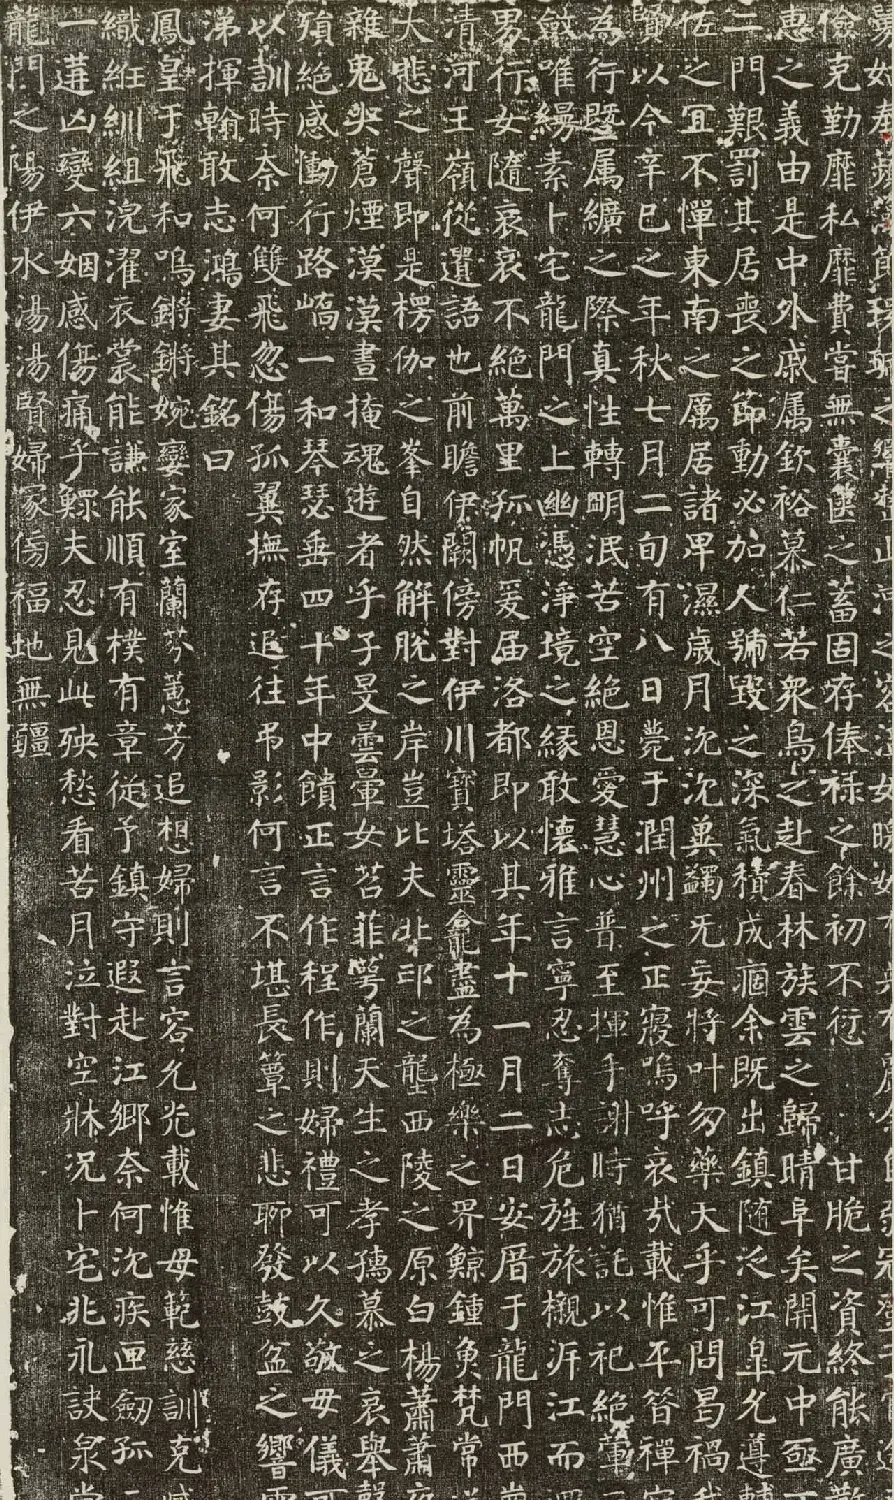 儉克勤靡私靡費嘗無囊篋之蓄固存俸祿之餘初不衍 甘脆之資終能廣
惠之義由是中外戚属欽裕慕仁若衆鳥之赴春林族雲之歸晴阜矣開元中
二門艱罰其居喪之節動必加人號毀之深氣積成痼余既出鎮随泛江皐允遵
佐之宜不憚東南之厲居諸卑濕歲月沈沈冀蠲无妄將叶勿藥天乎可問曷禍
以今辛巳之年秋七月二旬有八日薨于潤州之正寢嗚呼哀哉載惟平昔禪
為行暨属纊之際真性轉明泯苦空絕恩愛慧心普至揮手謝時猶託以祀絕葷
斂唯縵素卜宅龍門之上幽憑淨境之緣敢懷雅言寧忍奪志危旌旅櫬泝江而
男行女隨哀哀不絕萬里孤帆爰届洛都即以其年十一月二日安厝于龍門西
清河王嶺從遺語也前瞻伊闕傍對伊川寶塔靈龕盡為極樂之界鯨鍾魚梵常
大悲之聲即是楞伽之峯自然解脫之岸豈比夫北邙之壟西陵之原白楊蕭蕭
雜鬼哭蒼煙漠漠晝掩魂遊者乎子旻曇暈女苕菲萼蘭天生之孝孺慕之哀舉
殞絕感慟行路嗃一和琴瑟垂四十年中饋正言作程作則婦禮可以久敬母儀可
以訓時奈何雙飛忽傷孤翼撫存追往弔影何言不堪長簟之悲聊發鼓盆之響
涕揮翰敢志鴻妻其銘曰
鳳皇于飛和鳴鏘鏘婉孌家室蘭芬蕙芳追想婦則言容允光載惟母範慈訓克
織紝紃組浣濯衣裳能謙能順有樸有章從予鎮守遐赴江鄉奈何沈疾匣劒孤
一遘凶變六姻感傷痛乎鰥夫忍見此殃愁看苦月泣對空牀况卜宅兆永訣泉
龍門之陽伊水湯湯賢婦冢傷福地無疆